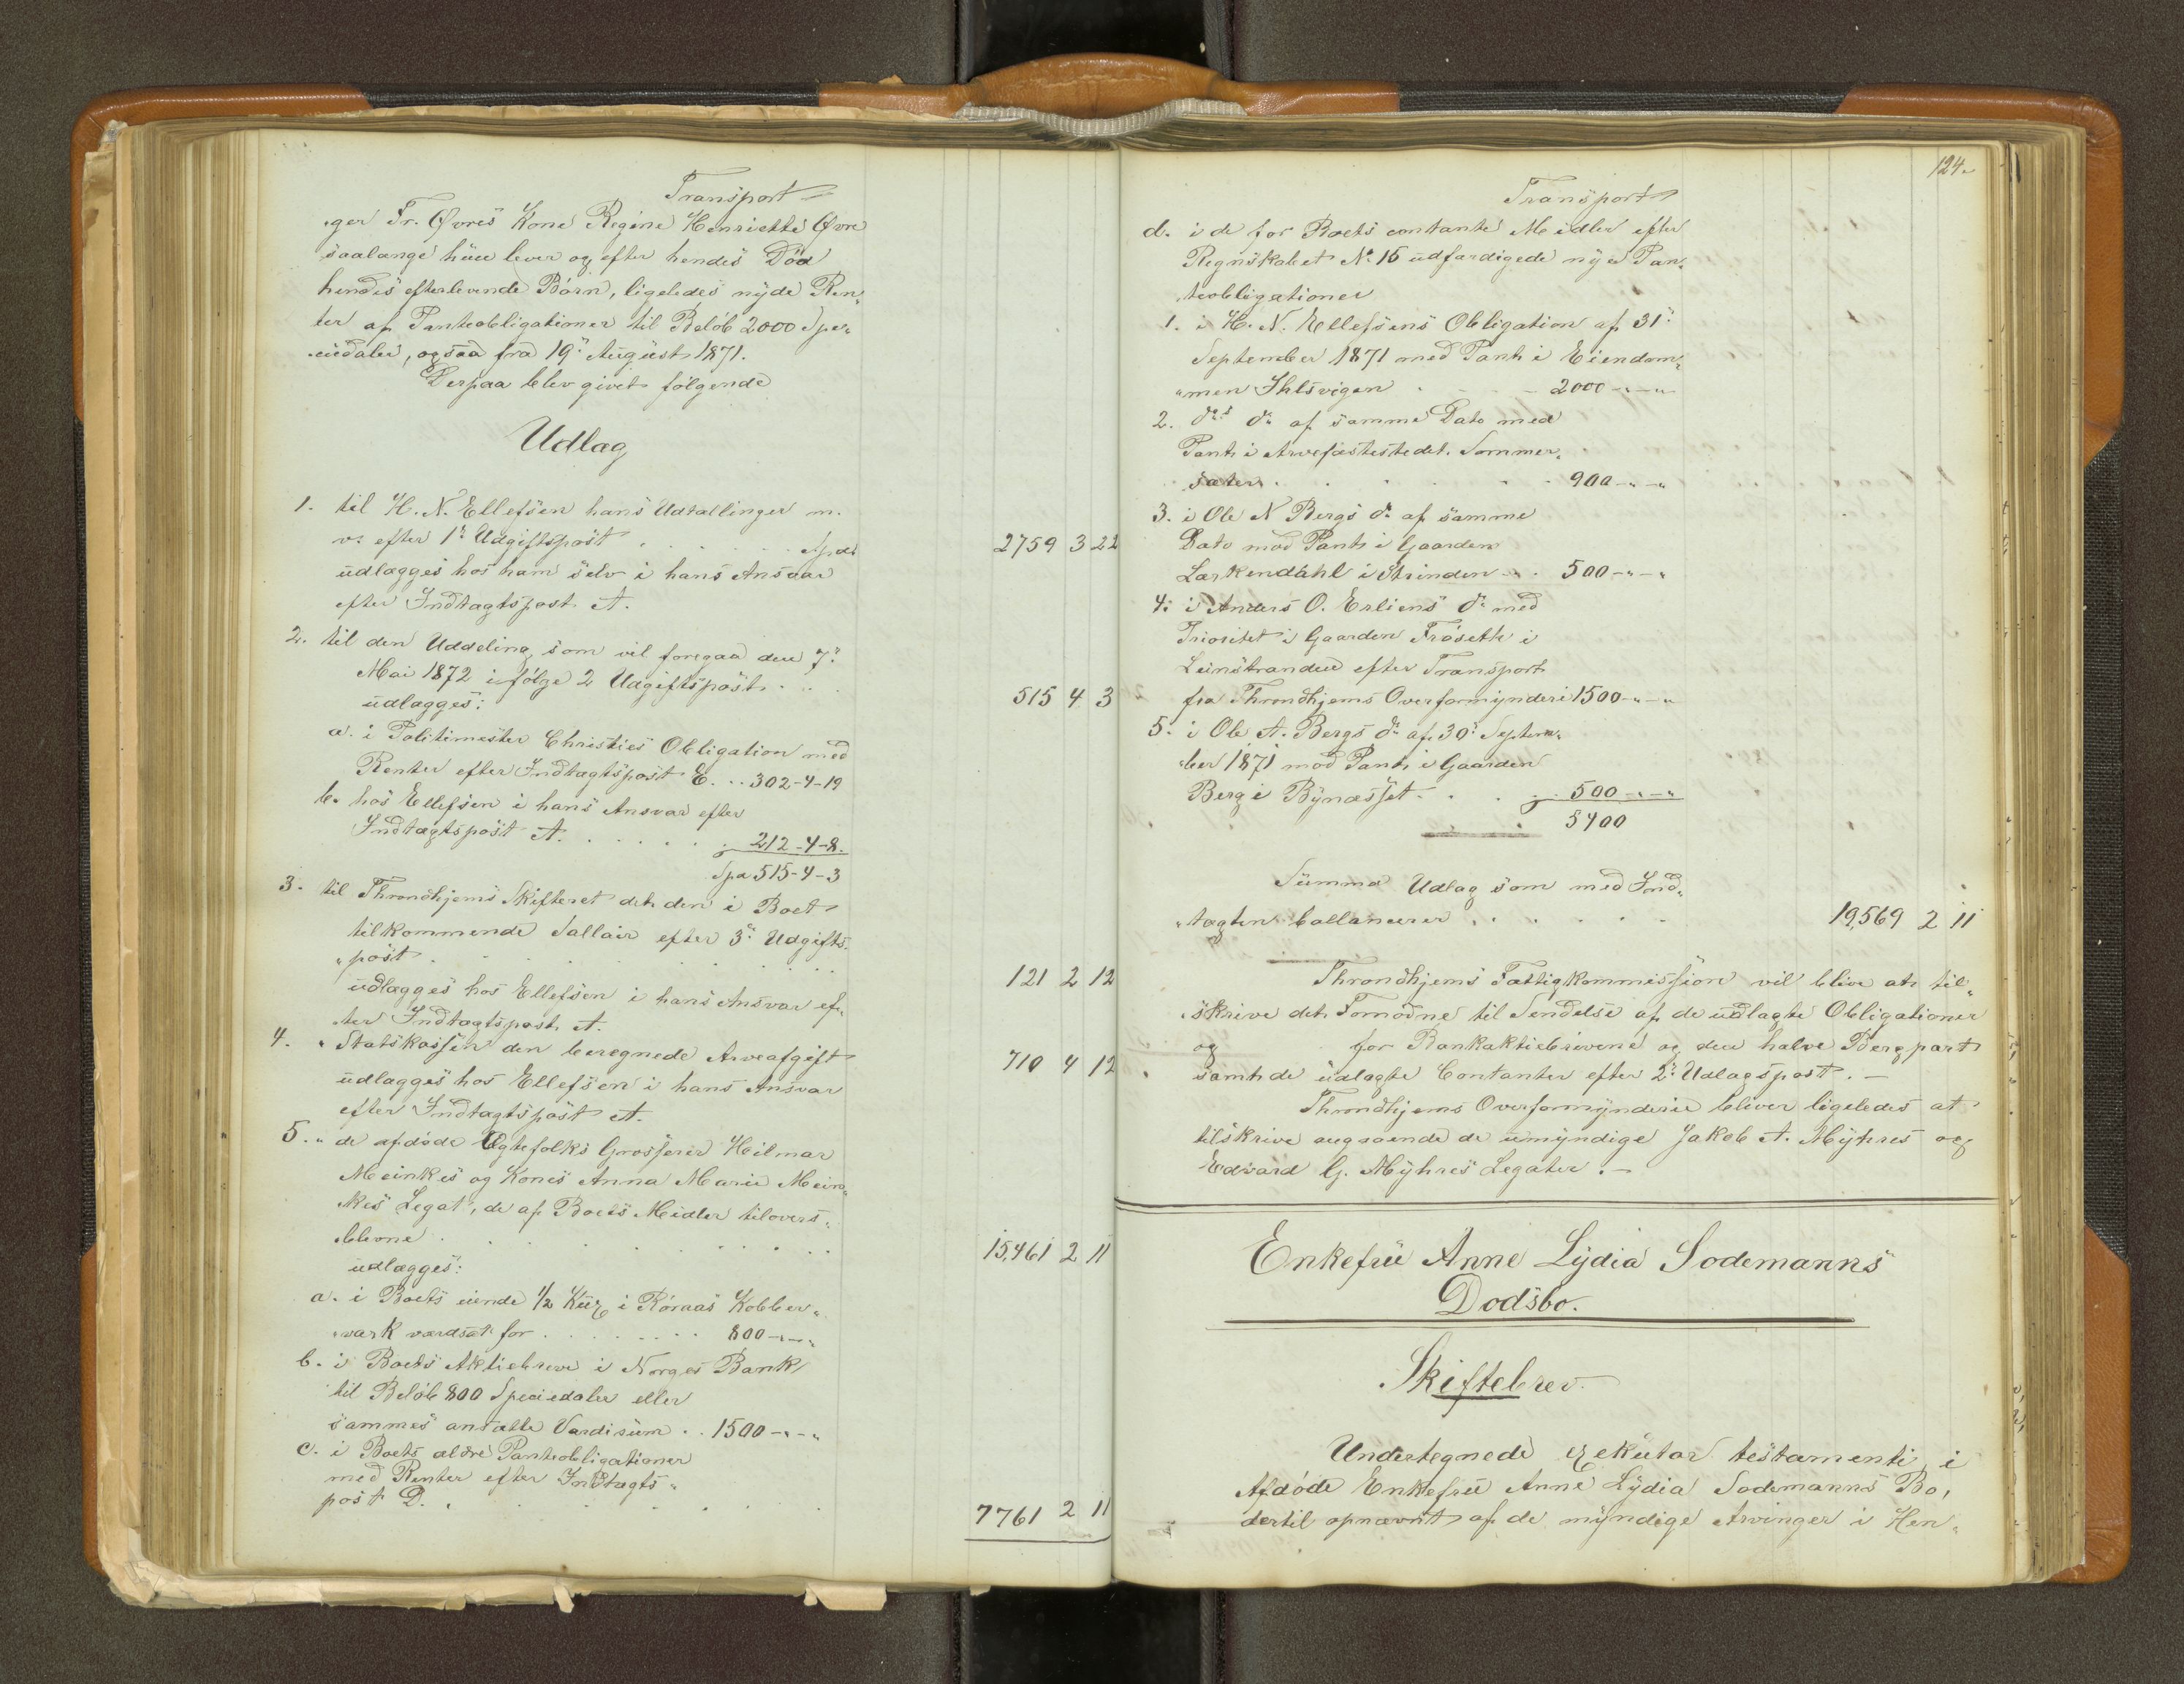 Transport
"ger Fr. Øvres Kone Regine Henriette Øvre
saalænge hun lever og efter hendes Død
hendes efterlevende Börn, ligeledes nyde Ren„
ter af Panteobligationer til Belöb 2000 Spe„
„ciedaler, ogsaa fra 19de August 1871.
Derpaa blev givet følgende
Udlag
1. til H. N. Ellefsen hans Udtællinger m.
v. efter 1ste Udgiftspost . . . . . Spd. 2759 3 22
udlægges hos ham selv i hans Ansvar
efter Indtægtspost A.
2. til den Uddeling som vil foregaa den 7de
Mai 1872 i følge 2 Udgiftspost . . . 515 4 3
udlægges:
a. i Politimester Christies Obligation med
Renter efter Indtægtspost E. . . 302-4-19
b. hos Ellefsen i hans Ansvar efter
Indtægtspost A. . . . . . . 212-4-8.
Spd 515-4-3
3. til Throndhjems Skifteret det den i Boet
tilkommende Sallair efter 3de Udgifts„
„post . . . . . . . 121 2 12
udlægges hos Ellefsen i hans Ansvar ef„
ter Indtægtspost A.
4. " Statskassen den beregnede Arveafgift 710 4 12
udlægges hos Ellefsen i hans Ansvar
efter Indtægtspost A.
5. " de afdöde Egtefolks Grosserer Hilmar
Meinkes og Kones Anna Marie Mein„
kes Legat, de af Boets Midler tilovers„
blevne . . . . . . . . . . 15,461 2 11
udlægges:
a. i Boets eiende 1/2 Kux i Röraas Kobber„
„værk værdsat for . . . . . . . 800-"-"
b. i Boets Aktiebreve i Norges Bank
til Belöb 800 Speciedaler eller
sammes ansatte Værdisum . . 1500-"-"
c. i Boets ældre Panteobligationer
med Renter efter Indtægts„
post D. . . . . . . 7761 2 11
124.
Transport
d. i de for Boets contante Midler efter
Regnskabet No 15 udfærdigede nye Pan„
teobligationer
1. i H. N. Ellefsens Obligation af 31te
September 1871 med Pant i Eiendom„
„men Ihlsvigen . . . 2000-"-"
2. ds do af samme Dato med
Pant i Arvefæstestedet Sommer„
sæter . . . . . . 900-"-"
3. i Ole N Bergs do af samme
Dato mod Pant i Gaarden
Lærkendahl i Strinden . . 500-"-"
4. i Anders O. Erliens do med
Prioritet i Gaarden Frösette i
Leinstranden efter Transport
fra Throndhjems Overformynderi 1500-"-"
5. i Ole A. Bergs do af 30te Septem„
„ber 1871 mod Pant i Gaarden
Berg i Bynæsset . . . . 500-"-"
5400
Summa Udlag som med Ind„
„tægten ballancerer . . . . . 19,569 2 11
Throndhjems Fattigkommission vil blive at til„
„skrive det Fornödne til Sendelse af de udlagte Obligationer
og for Bankaktiebrevene og den halve Bergpart
samt de udlagte Contanter efter 2de Udlagspost. —
Throndhjems Overformynderie bliver ligeledes at
tilskrive angaaende de umyndige Jakob A. Myhres og
Edvard G. Myhres Legater. —
Enkefru Anne Lydia Sodemanns
Dodsbo.
Skiftebrev.
Undertegnede exekutor testamenti i
Afdöde Enkefru Anne Lydia Sodemanns Bo,
dertil opnævnt af de myndige Arvinger i Hen„